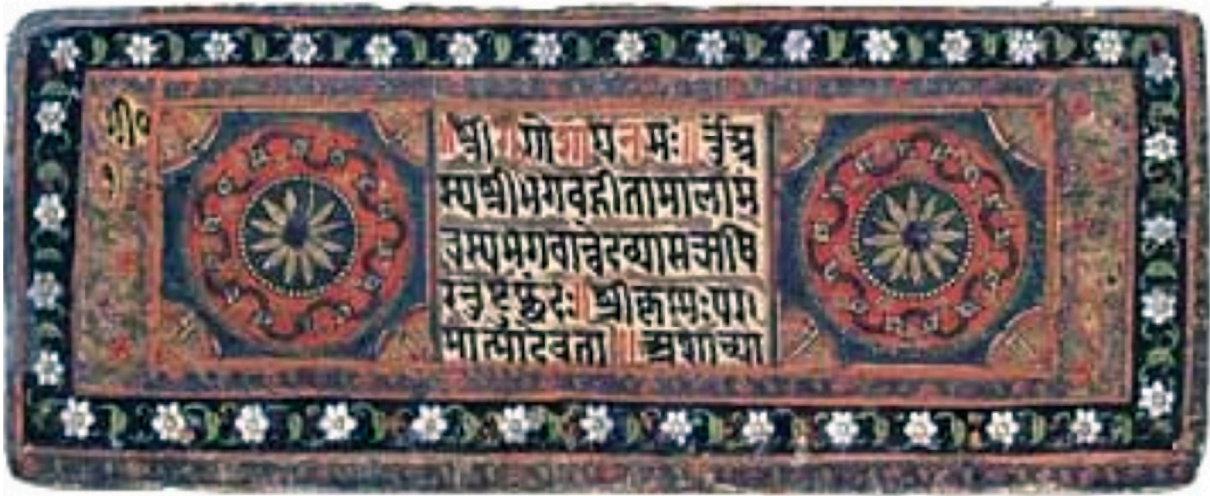 गी०
१
॥ श्रीगणेशायनमः॥ ॐअ
स्यश्रीभगवद्गीतामालामं
त्रस्यभगवान्वेदव्यासऋषि
रनुष्टुप्छंदः॥ श्रीकृष्णःपर
मात्मादेवता॥ अशोच्या